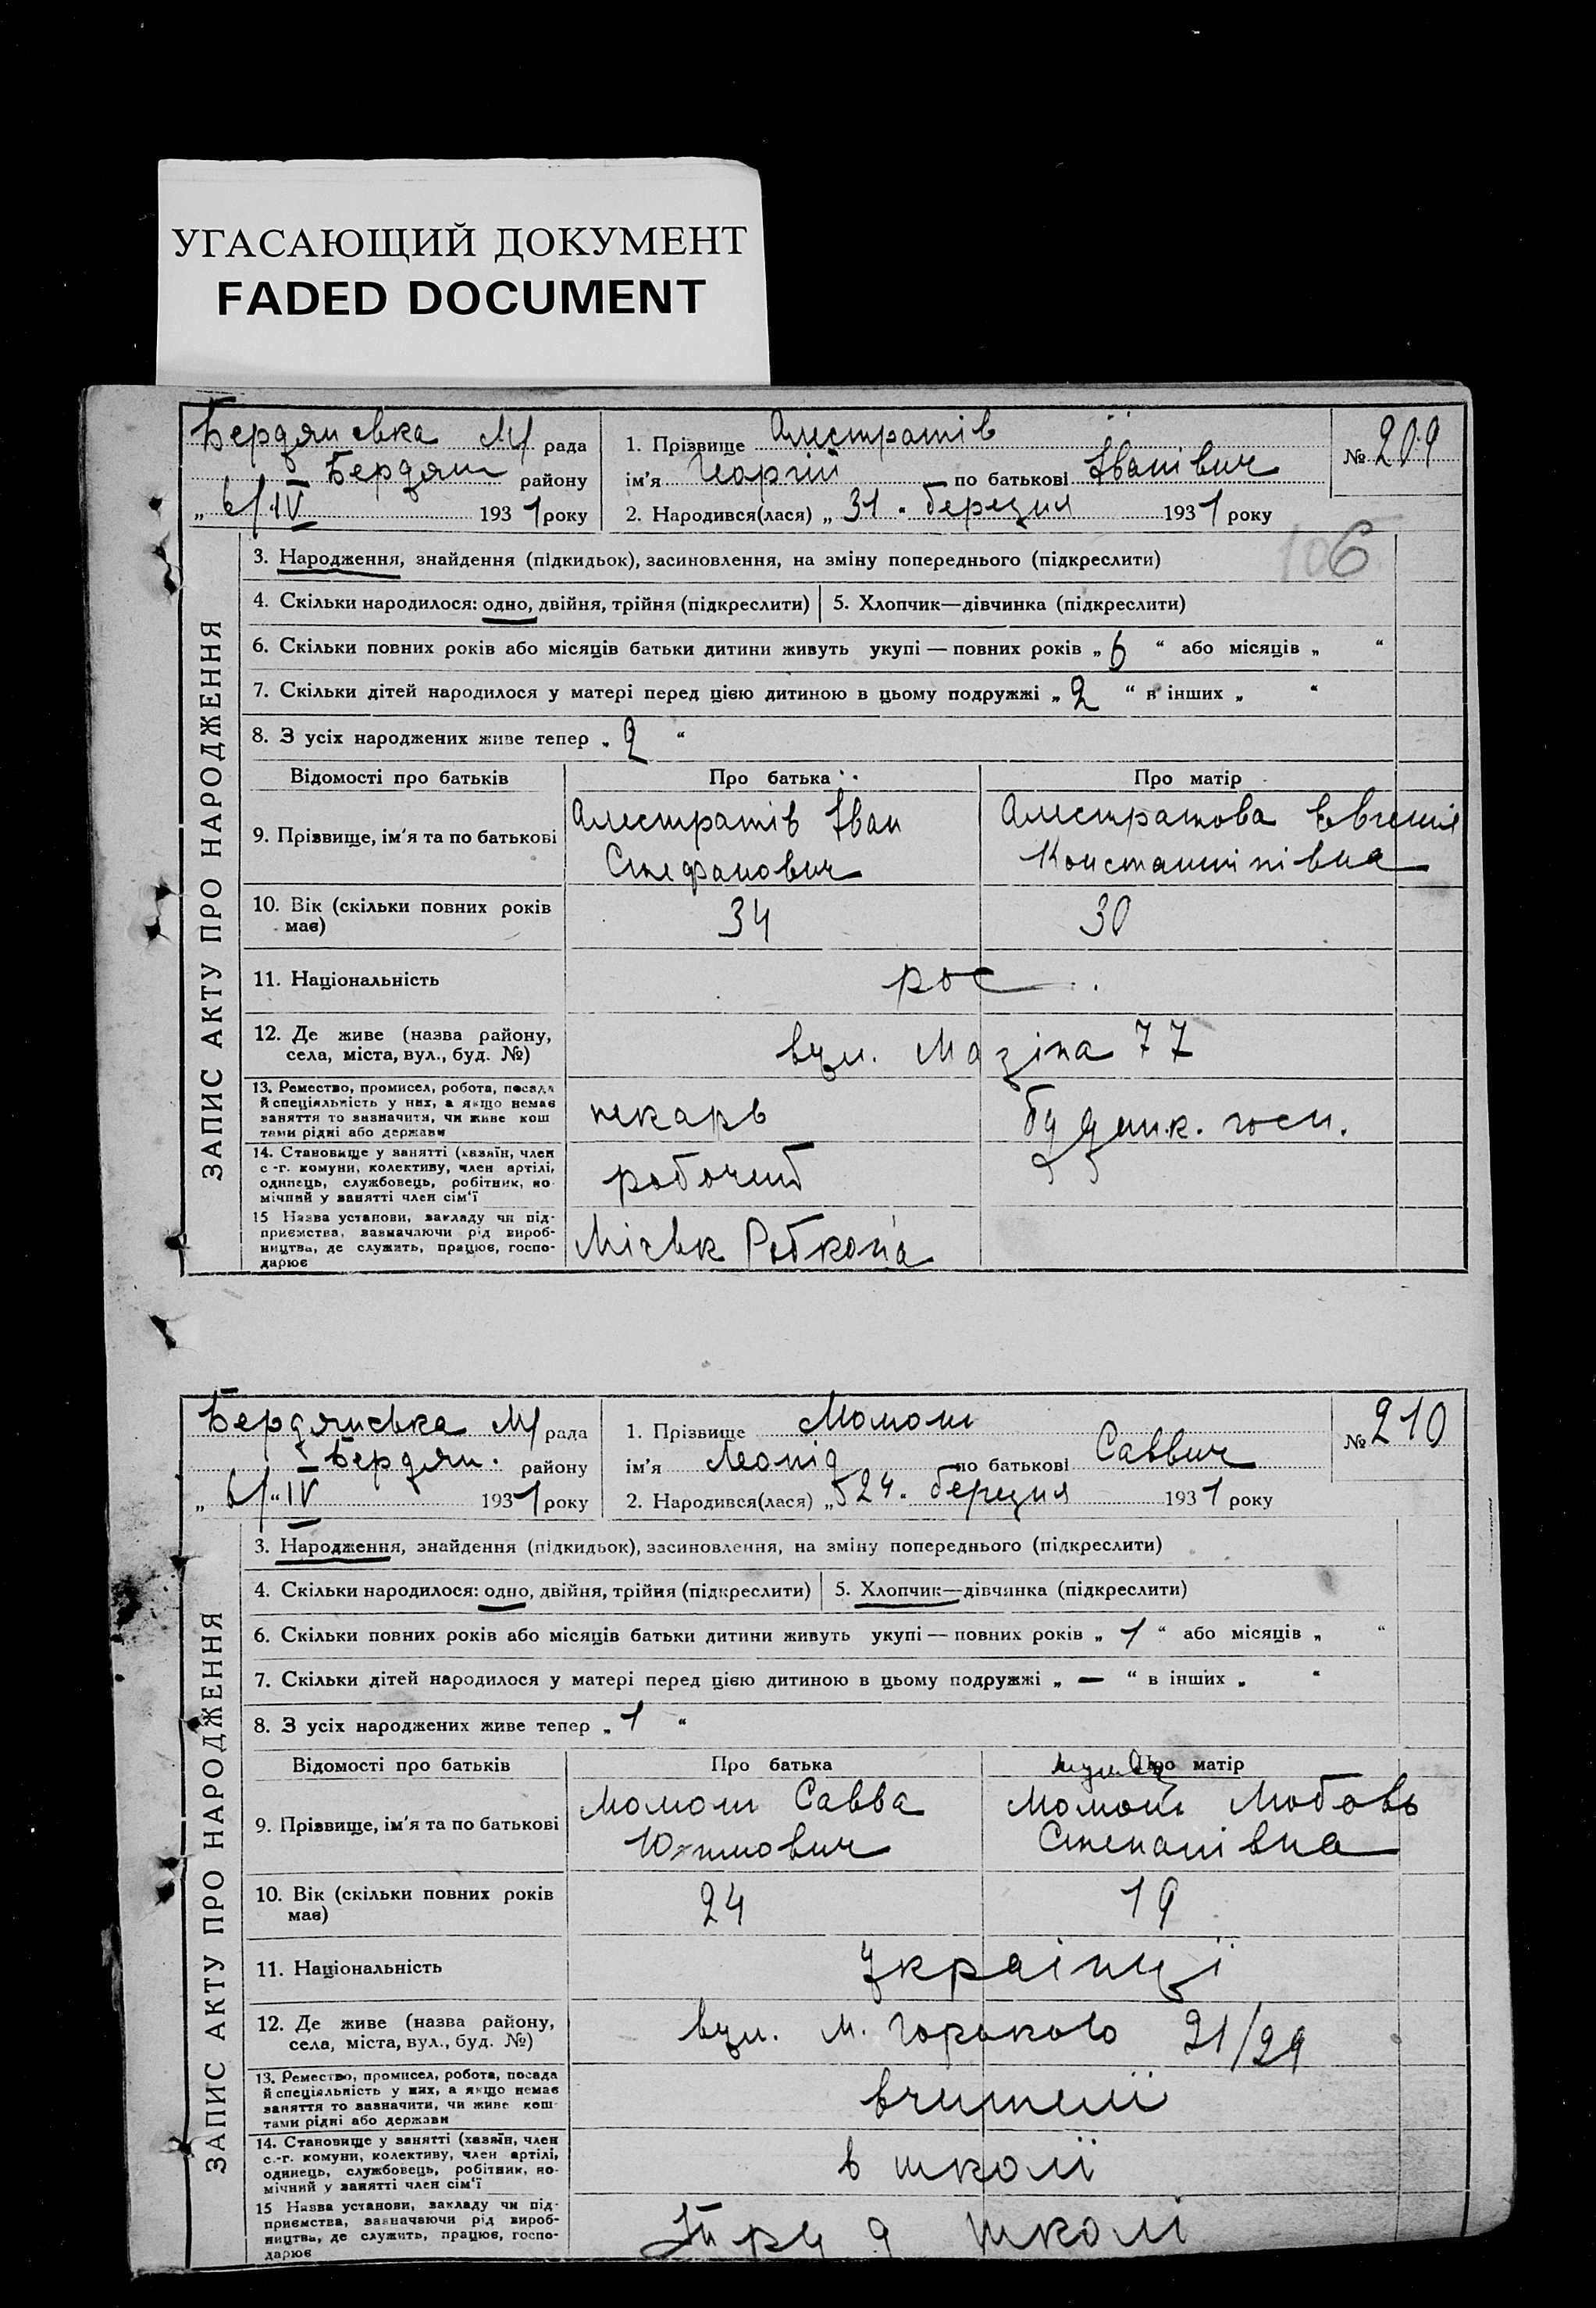 УГАСАЮЩИЙ ДОКУМЕНТ
FADED DOCUMENT
Бердянська М/рада
Бердян району
„ 6/IV 1931 року
1. Прізвище
ім'я Георгій по батькові Іванівич
2. Народився(лася) „ 31 " березня 1931 року
№ 209
106
ЗАПИС АКТУ ПРО НАРОДЖЕННЯ
3. Народження, знайдення (підкидьок), засиновлення, на зміну попереднього (підкреслити)
4. Скільки народилося: одно, двійня, трійня (підкреслити) 5. Хлопчик—дівчинка (підкреслити)
6. Скільки повних років або місяців батьки дитини живуть укупі — повних років „ 6 “ або місяців „ “
7. Скільки дітей народилося у матері перед цією дитиною в цьому подружжі „ 2 “ в інших „ “
8. З усіх народжених живе тепер „ 2 “
Відомості про батьків Про батька Про матір
9. Прізвище, ім'я та по батькові
Іван
Стефанович
Евгенія
Константинівна
10. Вік (скільки повних років має) 34 30
11. Національність рос
12. Де живе (назва району, села, міста, вул., буд. №) вул. Мазіна 77
13. Ремество, промисел, робота, посада
й спеціяльність у них, а якщо немає
заняття то зазначити, чи живе кош
тами рідні або держави
пекарь
будинк. госп.
14. Становище у занятті (хазяїн, член
с.-г. комуни, колективу, член артілі,
одинець, службовець, робітник, по-
мічний у занятті член сім'ї
робочий
15 Назва установи, закладу чи під-
приємства, зазначаючи рід вироб-
ництва, де служить, працює, госпо-
дарює
Робкопа
Бердянська М/рада
Бердян. району
„ 6/"IV 1931 року
1. Прізвище Момот
ім'я Леонід по батькові Саввич
2. Народився(лася) „ 24 " березня 1931 року
№ 210
ЗАПИС АКТУ ПРО НАРОДЖЕННЯ
3. Народження, знайдення (підкидьок), засиновлення, на зміну попереднього (підкреслити)
4. Скільки народилося: одно, двійня, трійня (підкреслити) 5. Хлопчик—дівчинка (підкреслити)
6. Скільки повних років або місяців батьки дитини живуть укупі — повних років „ 1 “ або місяців „ “
7. Скільки дітей народилося у матері перед цією дитиною в цьому подружжі „ — “ в інших „ “
8. З усіх народжених живе тепер „ 1 “
Відомості про батьків Про батька Про матір
9. Прізвище, ім'я та по батькові
Момот Савва
Момот Любовь
Степанівна
10. Вік (скільки повних років має) 24 19
11. Національність українці
12. Де живе (назва району, села, міста, вул., буд. №) вул. М. Горького 21/29
13. Ремество, промисел, робота, посада
й спеціяльність у них, а якщо немає
заняття то зазначити, чи живе кош-
тами рідні або держави
вчителі
14. Становище у занятті (хазяїн, член
с.-г. комуни, колективу, член артілі,
одинець, службовець, робітник, по-
мічний у занятті член сім'ї
в школі
15 Назва установи, закладу чи під-
приємства, зазначаючи рід вироб-
ництва, де служить, працює, госпо-
дарює
школі